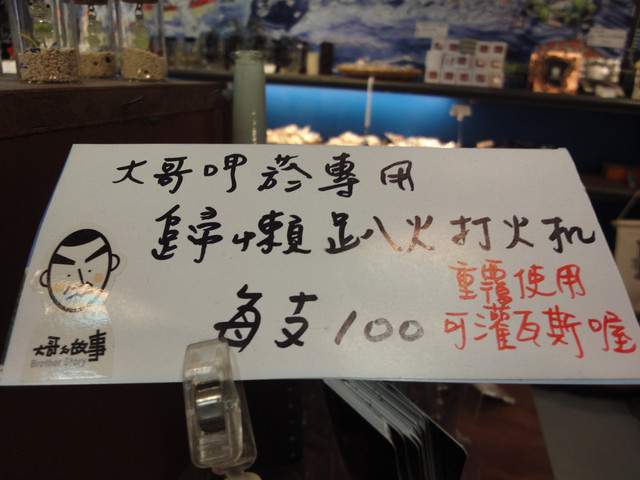 大哥呷菸專用
歸懶趴火打火机
每支100
重覆使用
可灌瓦斯喔
大哥的故事
Brother Story